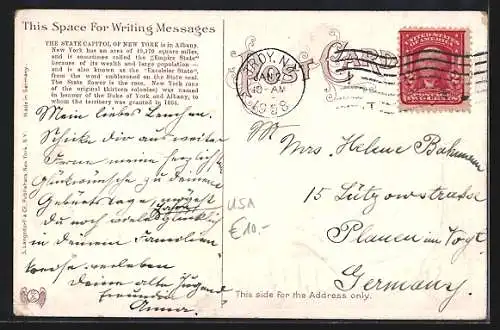 This Space For Writing Messages
THE STATE CAPITOL OF NEW YORK is in Albany.
New York has an area of 49,170 square miles,
and it sometimes called the "Empire State"
because of its wealth and large population —
and is also known as the "Excelsior State",
from the word emblazoned on the State seal.
The State flower is the rose. New York (one
of the original thirteen colonies) was named
in honour of the Duke of York and Albany, to
whom the territory was granted in 1664.
Mein liebes Lenchen.
Schicke dir aus weiter
Ferne meine herzlichsten
Glückwünsche zu deinem
Geburtstage, mögest
du noch viele Jahre Glücklich
in deinem Familien
kreise verleben
deine alte Jugend
freundin
Anna.
Made in Germany.
J. Langsdorf & Co. Publishers New York, N.Y.
TROY, N.Y.
10-AM
1908
POST CARD
UNITED STATES OF AMERICA
TWO CENTS
Mrs. Helene
15 Lützowstrasse
Plauen im Vogt.
Germany.
USA
€10.-
This side for the Address only.